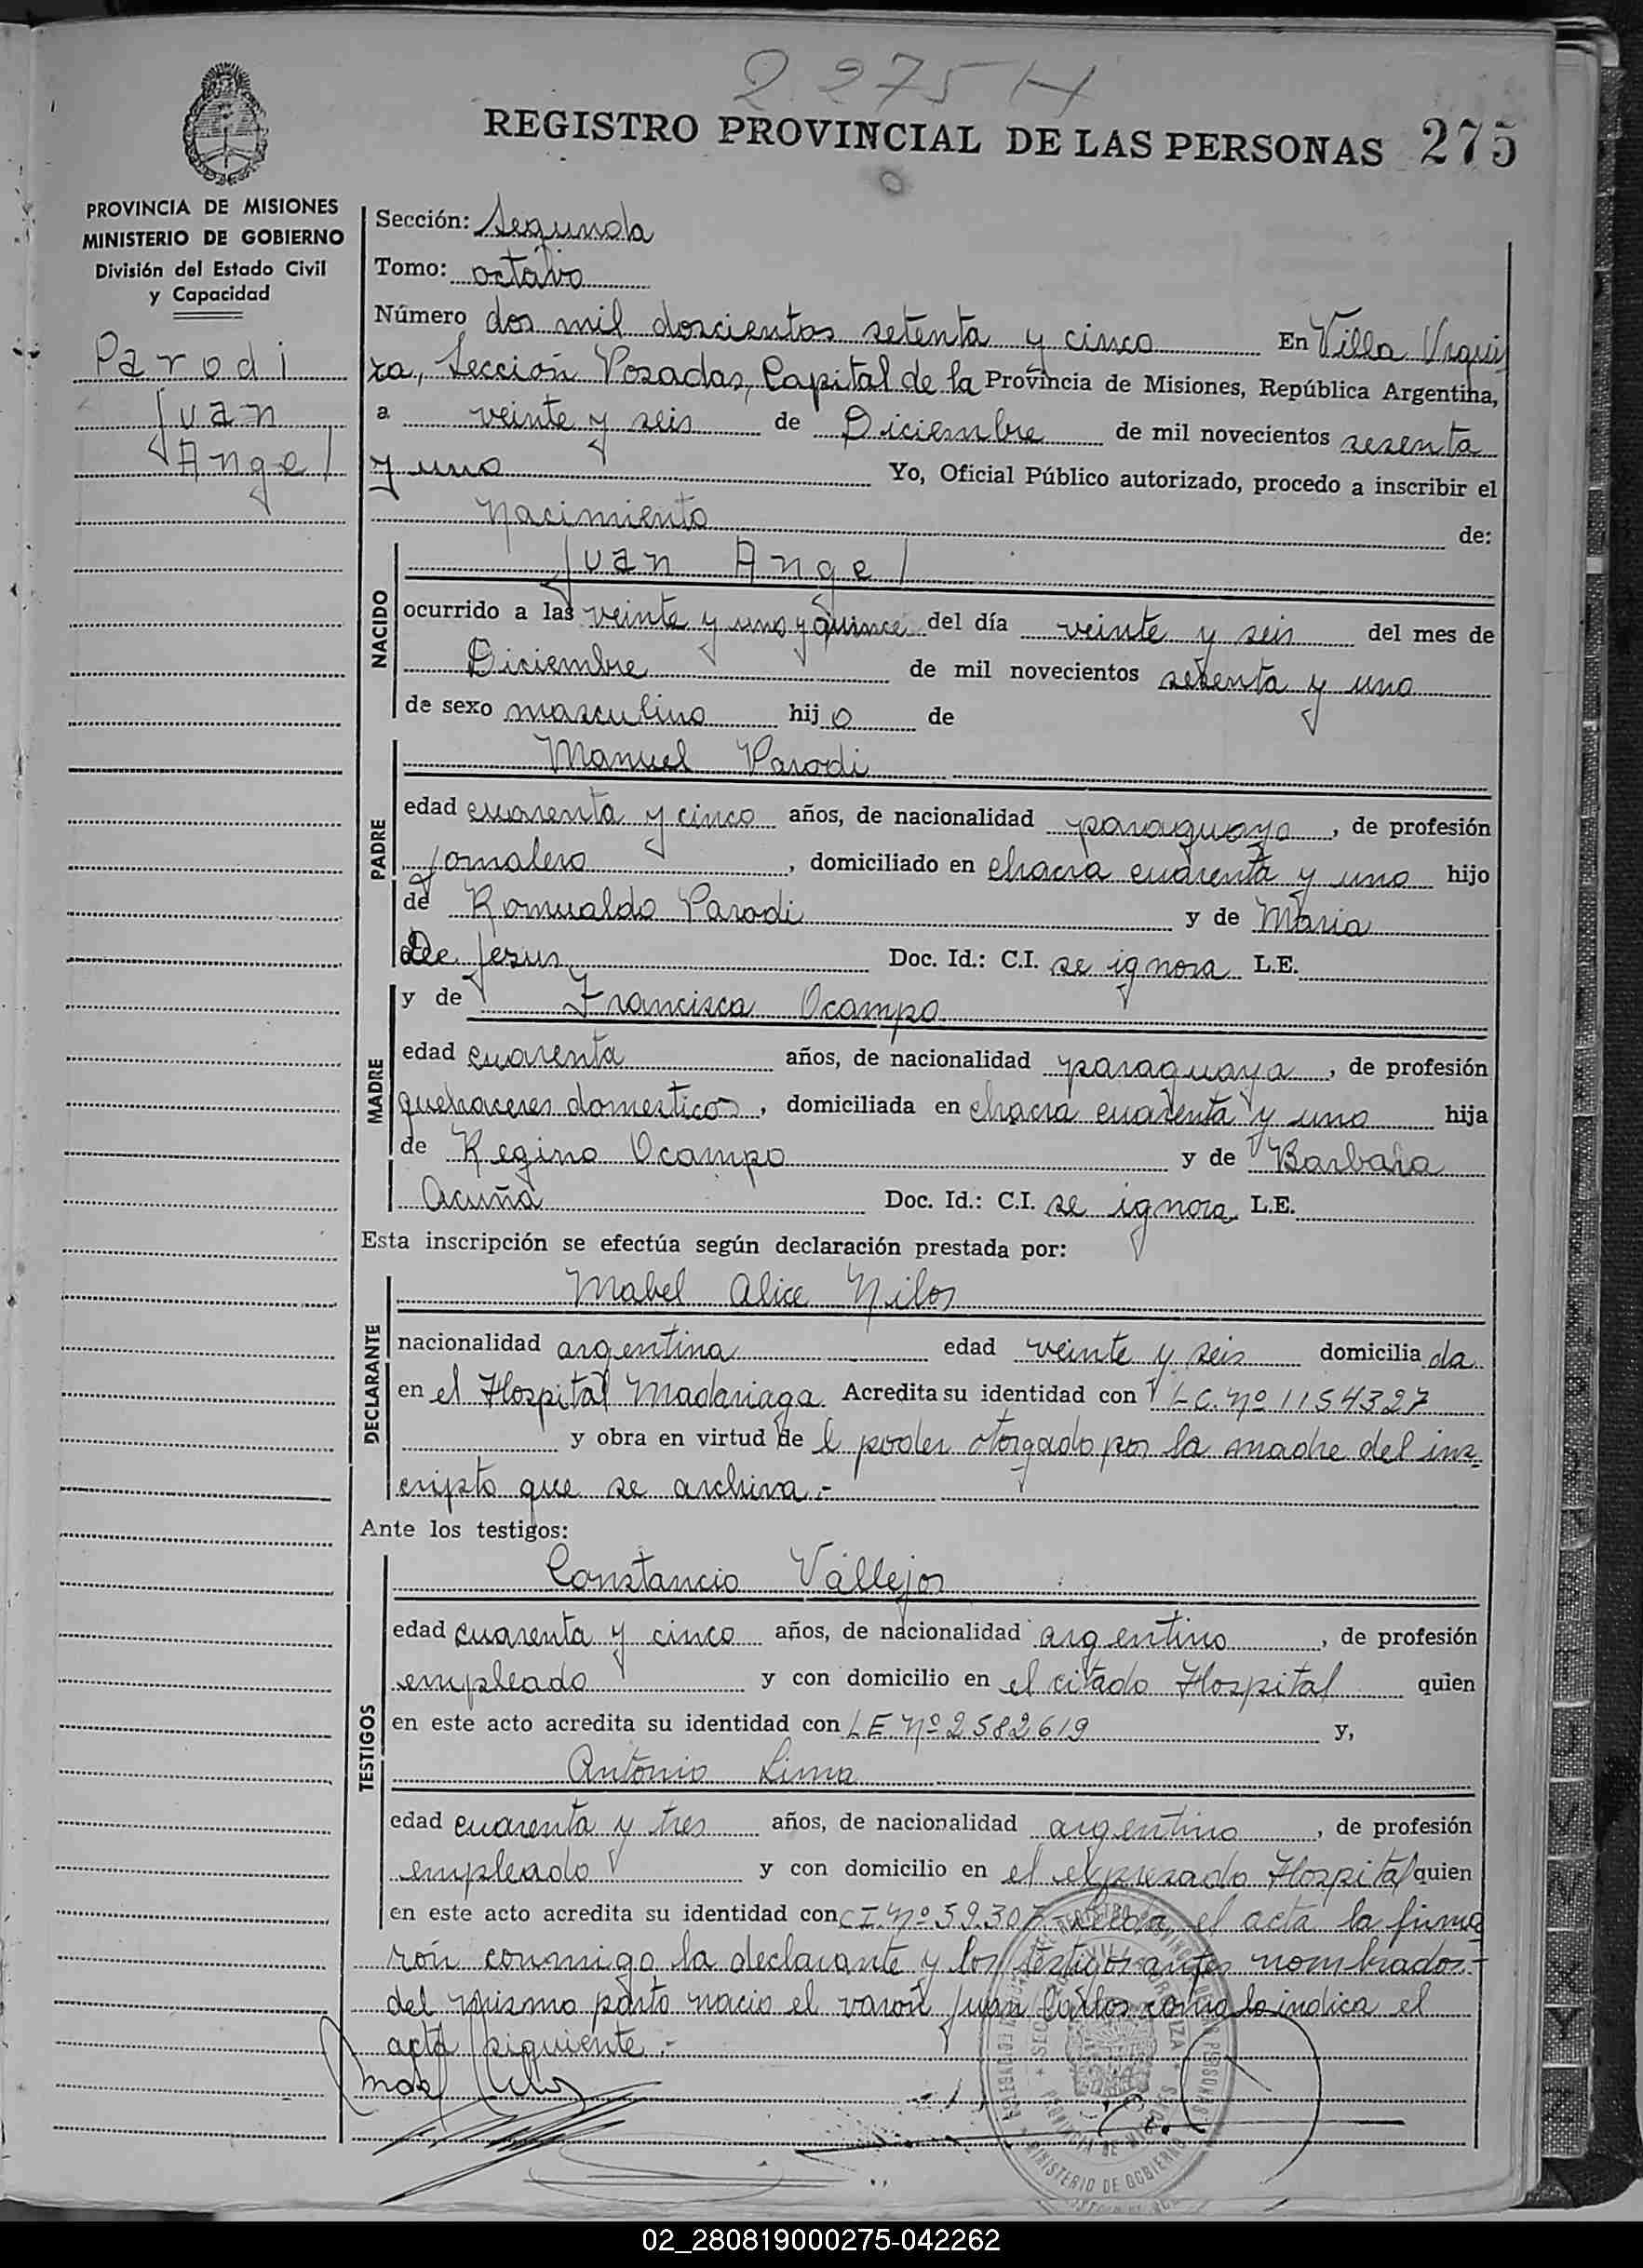 2275 H
REGISTRO PROVINCIAL DE LAS PERSONAS 275
PROVINCIA DE MISIONES
MINISTERIO DE GOBIERNO
División del Estado Civil
y Capacidad
Parodi
Juan
Angel
Sección: Segunda
Tomo: octavo
Número dos mil doscientos setenta y cinco En Villa Urqui
za, Sección Posadas, Capital de la Provincia de Misiones, República Argentina,
a veinte y seis de Diciembre de mil novecientos sesenta
y uno Yo, Oficial Público autorizado, procedo a inscribir el
nacimiento de:
NACIDO
Juan Angel
ocurrido a las veinte y uno y quince del día veinte y seis del mes de
Diciembre de mil novecientos sesenta y uno
de sexo masculino hijo de
PADRE
Manuel Parodi
edad cuarenta y cinco años, de nacionalidad paraguaya, de profesión
jornalero, domiciliado en chacra cuarenta y uno hijo
de Romualdo Parodi y de Maria
De Jesus Doc. Id.: C.I. se ignora L.E.
MADRE
y de Francisca Ocampo
edad cuarenta años, de nacionalidad paraguaya, de profesión
quehaceres domesticos, domiciliada en chacra cuarenta y uno hija
de Regino Ocampo y de Barbara
Acuña Doc. Id.: C.I. se ignora L.E.
Esta inscripción se efectúa según declaración prestada por:
DECLARANTE
Mabel Alice Nilos
nacionalidad argentina edad veinte y seis domiciliada
en el Hospital Madariaga. Acredita su identidad con L.C. Nº 1154327
y obra en virtud del poder otorgado por la madre del ins-
cripto que se archiva.-
Ante los testigos:
TESTIGOS
Constancio Vallejos
edad cuarenta y cinco años, de nacionalidad argentino, de profesión
empleado y con domicilio en el citado Hospital quien
en este acto acredita su identidad con L.E. Nº 2582619 y,
Antonio Lima
edad cuarenta y tres años, de nacionalidad argentino, de profesión
empleado y con domicilio en el expresado Hospital quien
en este acto acredita su identidad con C.I. Nº 59.307 Leida el acta la firma
rón conmigo la declarante y los testigos antes nombrados.-
del mismo parto nacio el varon Juan Carlos como lo indica el
acta siguiente.-
MINISTERIO DE GOBIERNO
02_280819000275-042262